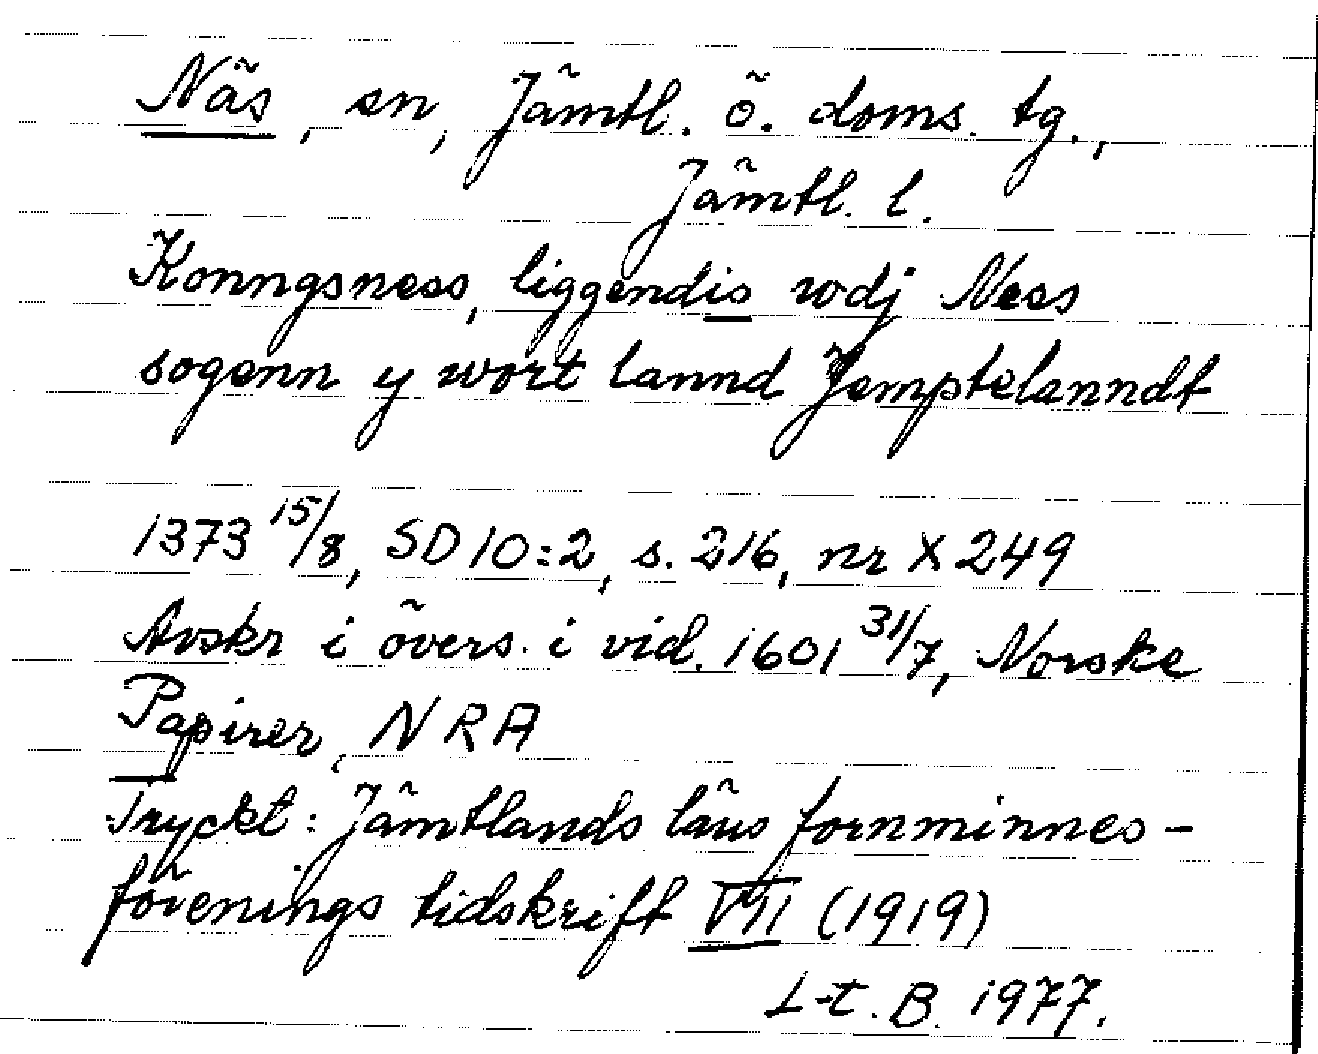 Näs, sn, Jämtl. ö. doms. tg.,
Jämtl. l.
Konngsness, liggendis wdj Ness
sogenn y wort lannd Jemptelanndt
1373 15/8, SD 10:2, s. 216, nr X 249
Avskr i övers. i vid. 1601 31/7, Norske
Papirer, NRA
Tryckt: Jämtlands läns fornminnes-
förenings tidskrift VII (1919)
L-t. B. 1977.